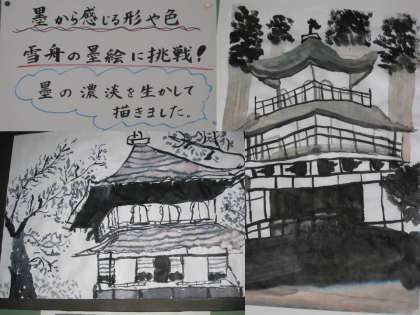 墨から感じる形や色
雪舟の墨絵に挑戦!
墨の濃淡を生かして
描きました。